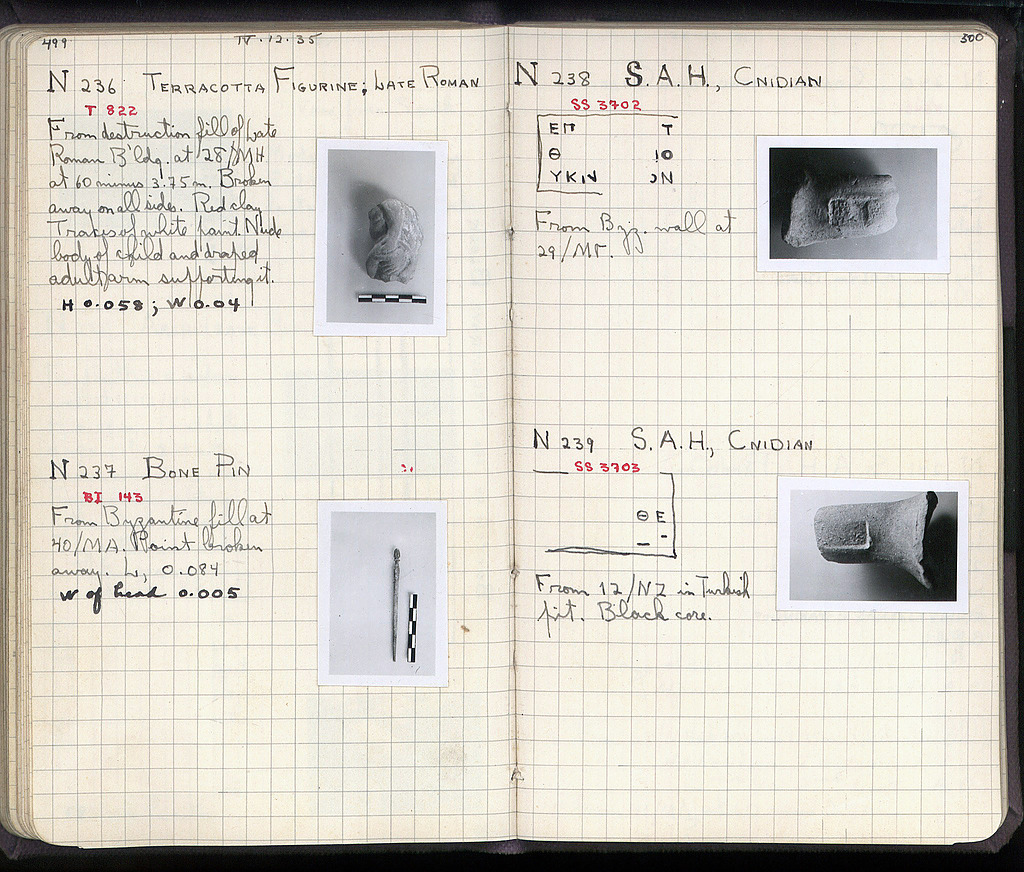 499
IV.12.35
N 236 TERRACOTTA FIGURINE; LATE ROMAN
T 822
From destruction fill of Late
Roman B'ldg. at 28/MH
at 60 minus 3.75 m. Broken
away on all sides. Red clay
Traces of white paint. Nude
body of child and draped
adult arm supporting it.
H 0.058; W 0.04
N 237 BONE PIN
BI 143
From Byzantine fill at
40/MA. Point broken
away. L, 0.084
W of head 0.005
500
N 238 S.A.H., CNIDIAN
SS 3702
ΕΠ Τ
Θ ΙΟ
ΥΚΙΝ ΟΝ
From Byz. wall at
29/MΓ.
N 239 S.A.H., CNIDIAN
SS 3703
Θ Ε
From 12/NZ in Turkish
pit. Black core.